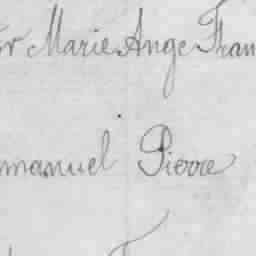 Marie Ange Fran
manuel Pierre